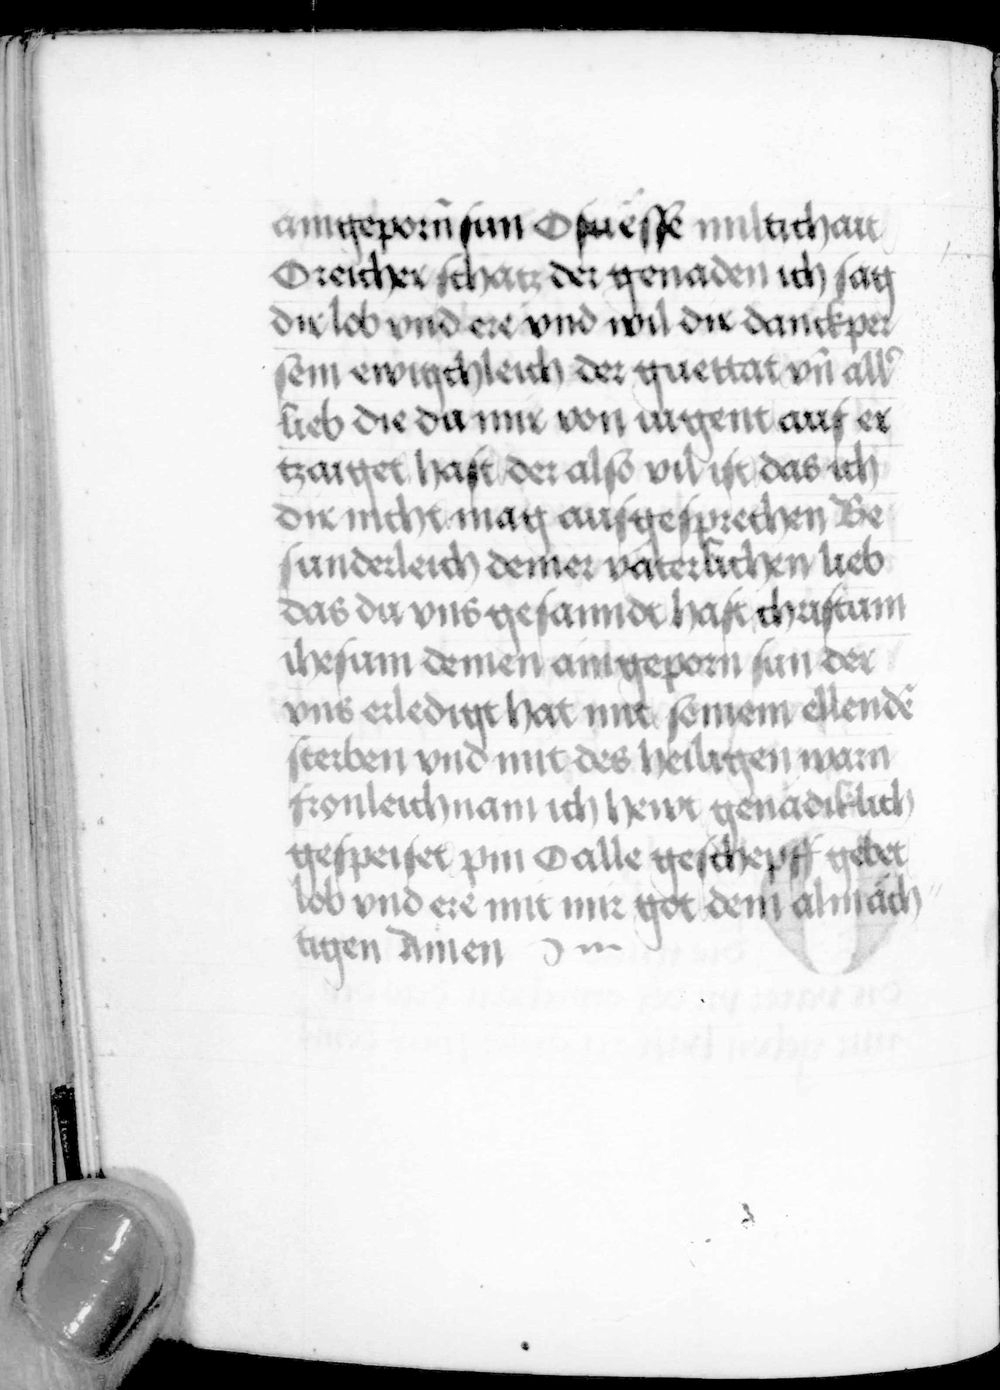 aingeporñ sun O suesse miltichait
O reicher schatz der genaden ich sag
dir lob vnd ere vnd wil dir danckper
sein ewigchleich der guettat vñ all
lieb die du mir von iugent auf er
tzaiget hast der also vil ist das ich
dir nicht mag ausgesprechen Be
sunderleich deiner väterlichen lieb
das du vns gesanndt hast christum
ihesum deinen aingeporn sun der
vns erledigt hat mit seinem ellendē
sterben vnd mit des heiligen warn
fronleichnam ich hewt genädiklich
gespeiset pin O alle geschepff gebet
lob vnd ere mit mir got dem almäch
tigen Amen